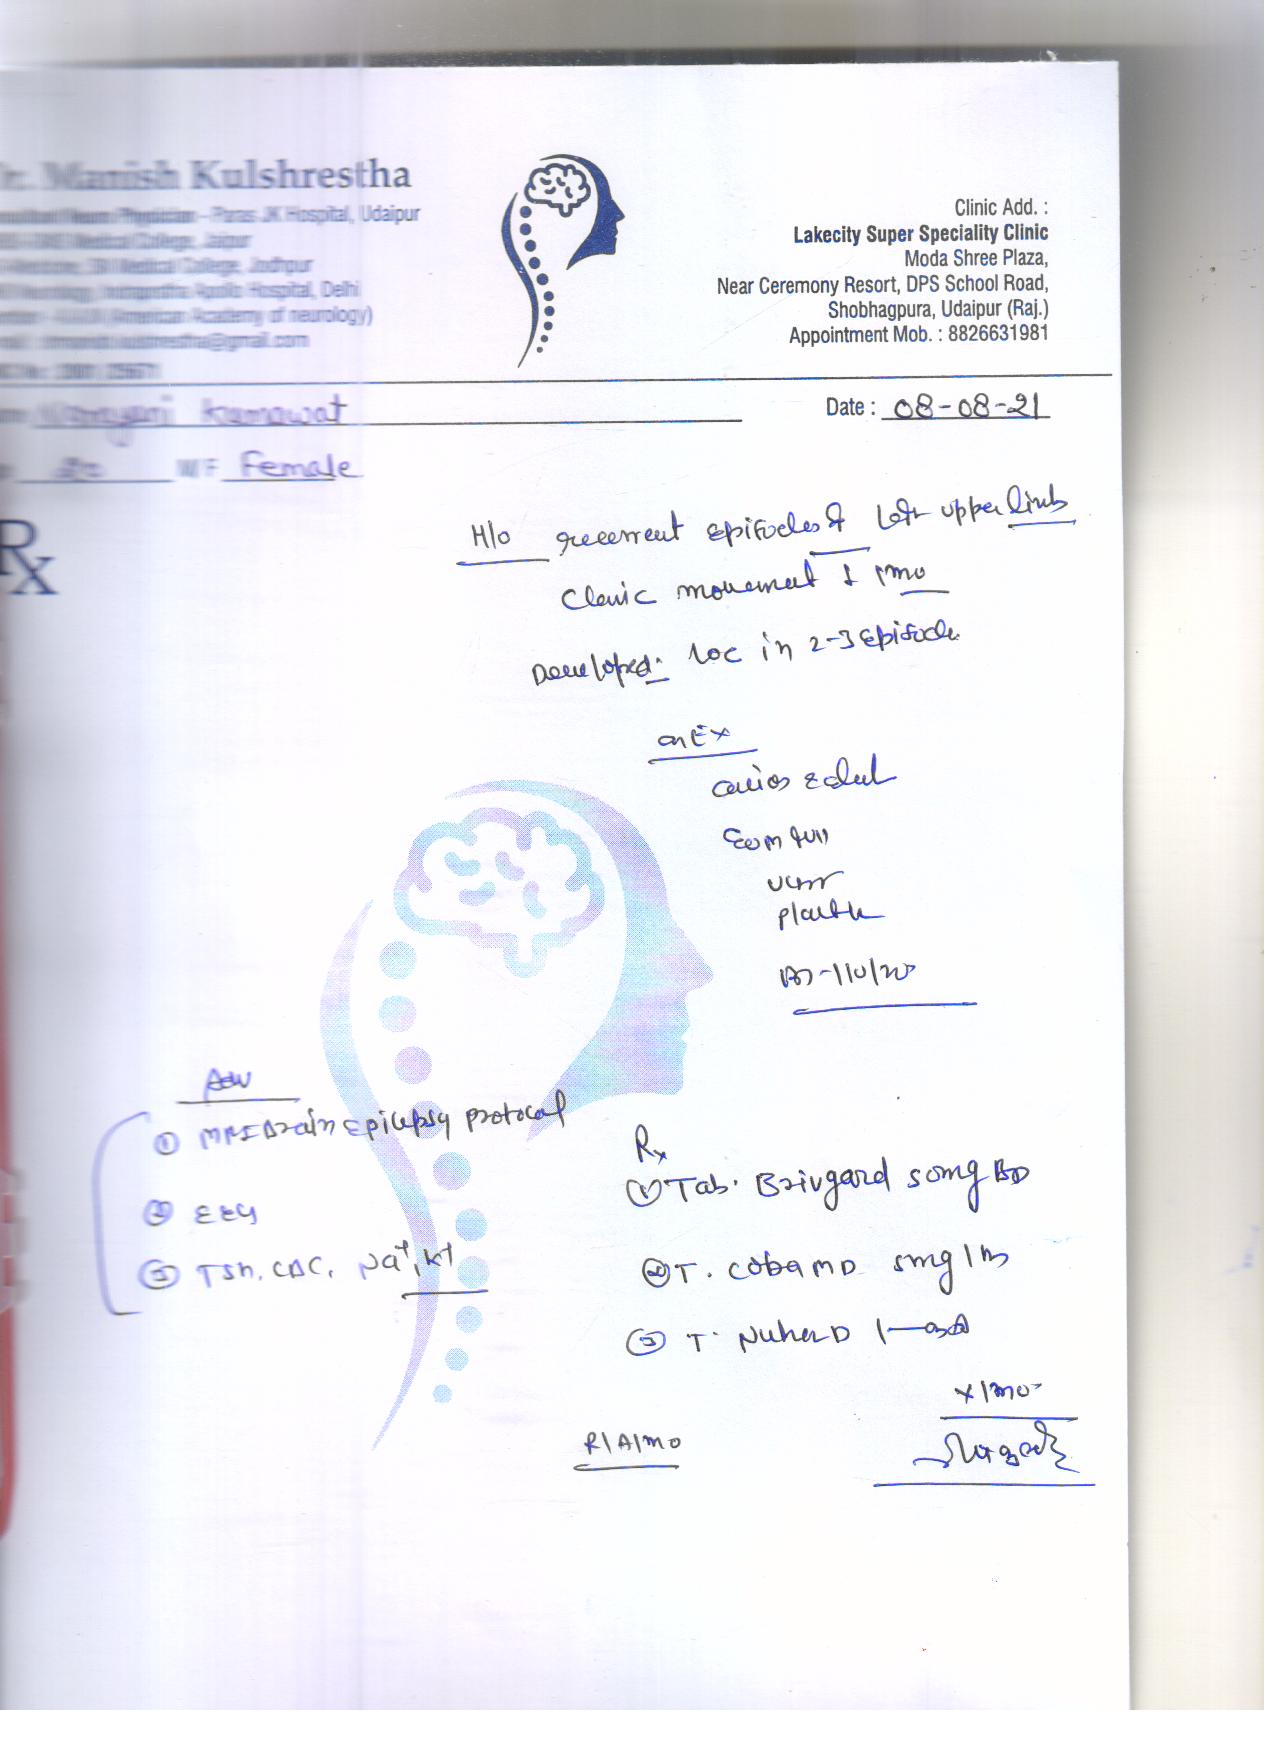 Dr. Manish Kulshrestha
Consultant Neuro Physician - Paras JK Hospital, Udaipur
Medical College, Jaipur
Medical College, Jodhpur
Neurology, Indraprastha Apollo Hospital, Delhi
(American Academy of neurology)
@gmail.com
Clinic Add. :
Lakecity Super Speciality Clinic
Moda Shree Plaza,
Near Ceremony Resort, DPS School Road,
Shobhagpura, Udaipur (Raj.)
Appointment Mob. : 8826631981
Narayani Kumawat
Date : 08-08-21
M/F Female
Rx
H/o recurrent episodes of left upper limb
clonic movement 1 mo
Developed: LOC in 2-3 episode
on Ex
EOM full
Adv
① MRI Brain Epilepsy protocol
② EEG
③ TSH, CBC, Na+, K+
Rx
① Tab. Brivgard 50mg BD
② T. Coba MD 5mg 1 hs
③ T. D 1—od
x 1mo
R/A/mo